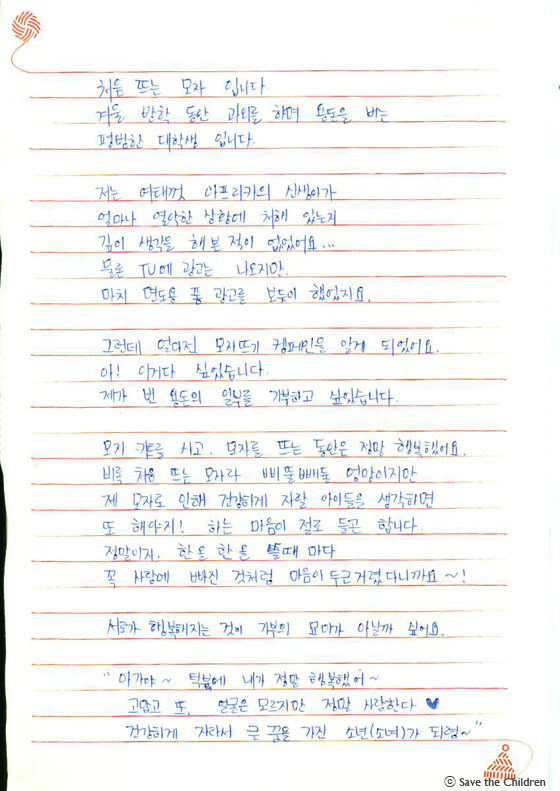 처음 뜨는 모자 입니다.
겨울 방학 동안 과외를 하며 용돈을 버는
평범한 대학생 입니다.
저는 여태껏 아프리카의 신생아가
얼마나 열악한 상황에 처해 있는지
깊이 생각을 해본 적이 없었어요...
물론 TV에 광고는 나오지만,
마치 면도용 폼 광고를 보듯이 했었지요.
그런데 얼마전 모자뜨기 캠페인을 알게 되었어요.
아! 이거다 싶었습니다.
제가 번 용돈의 일부를 기부하고 싶었습니다.
모기 키트를 사고, 모자를 뜨는 동안은 정말 행복했어요.
비록 처음 뜨는 모자라 삐뚤빼뚤 엉망이지만
제 모자로 인해 건강하게 자랄 아이들을 생각하면
또 해야지! 하는 마음이 절로 들곤 합니다.
정말이지, 한올 한올 뜰때 마다
꼭 사랑에 빠진 것처럼 마음이 두근거렸다니까요 ~!
서로가 행복해지는 것이 기부의 묘미가 아닐까 싶어요.
"아가야~ 덕분에 내가 정말 행복했어~
고맙고 또, 얼굴은 모르지만 정말 사랑한다 ♥
건강하게 자라서 큰 꿈을 가진 소년(소녀)가 되렴~"
ⓒ Save the Children